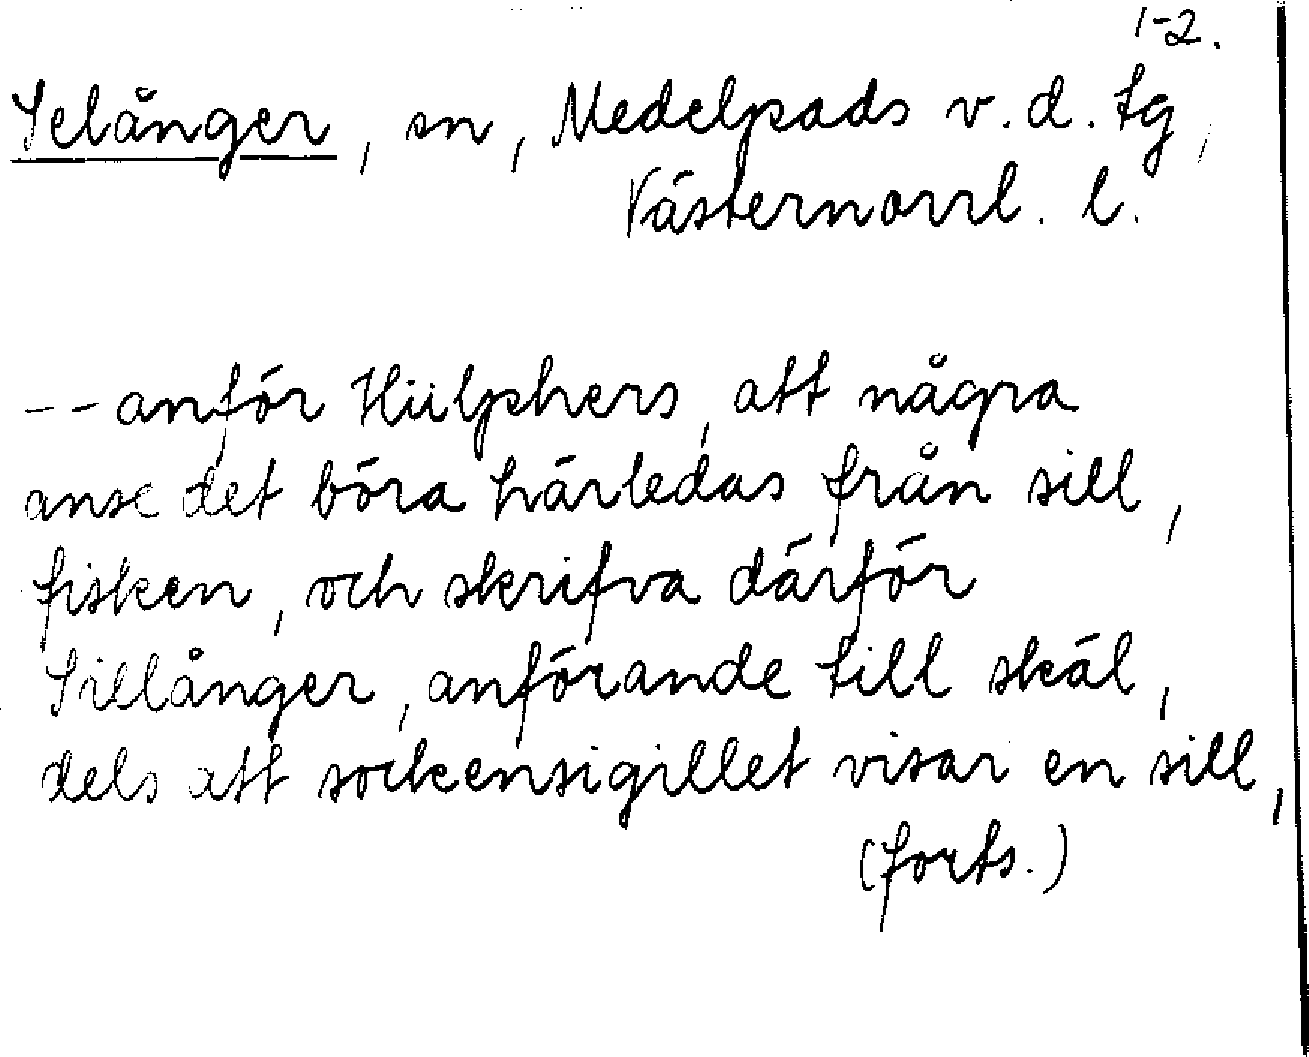 1-2.
Selånger, sn, Medelpads v. d. tg,
Västernorrl. l.
-- anför Hülphers, att några
anse det böra härledas från sill,
fisken, och skrifva därför
Sillånger, anförande till skäl,
dels att sockensigillet visar en sill,
(forts.)